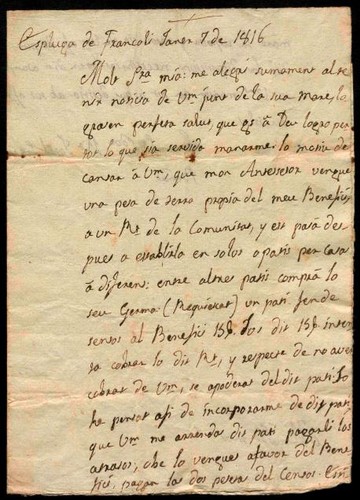 Espluga de Francoli Janer 7 de 1816
Molt Sra mia: me alegri sumament al te-
nir noticia de Vm junt de la sua mare, lo
grasen perfeta salut, que es à Deu logro per
tot lo que sia servida manarme. lo motiu de
cansar à Vm, que mon Antesesor vengue
una pesa de terra propia del meu Benefisi,
a un Rt de la Comunitat, y est pasà des-
pues a establirla en solos o patis per casas
à diferens: entre altres patis comprà lo
seu Germà (Requiescat) un pati fende
sensos al Benefisi 15 ß. los dit 15 ß inten-
sa cobrar lo dit Rt, y respecte de no aver
cobrat de Vm, se apoderà del dit pati. Jo
he pensat asi de incorporarme de dit pati
que Vm me arrenda dit pati pagarli los
atrasos, o be lo vengues afavor del Bene-
fisi, pagan la dos pesera del Censos.